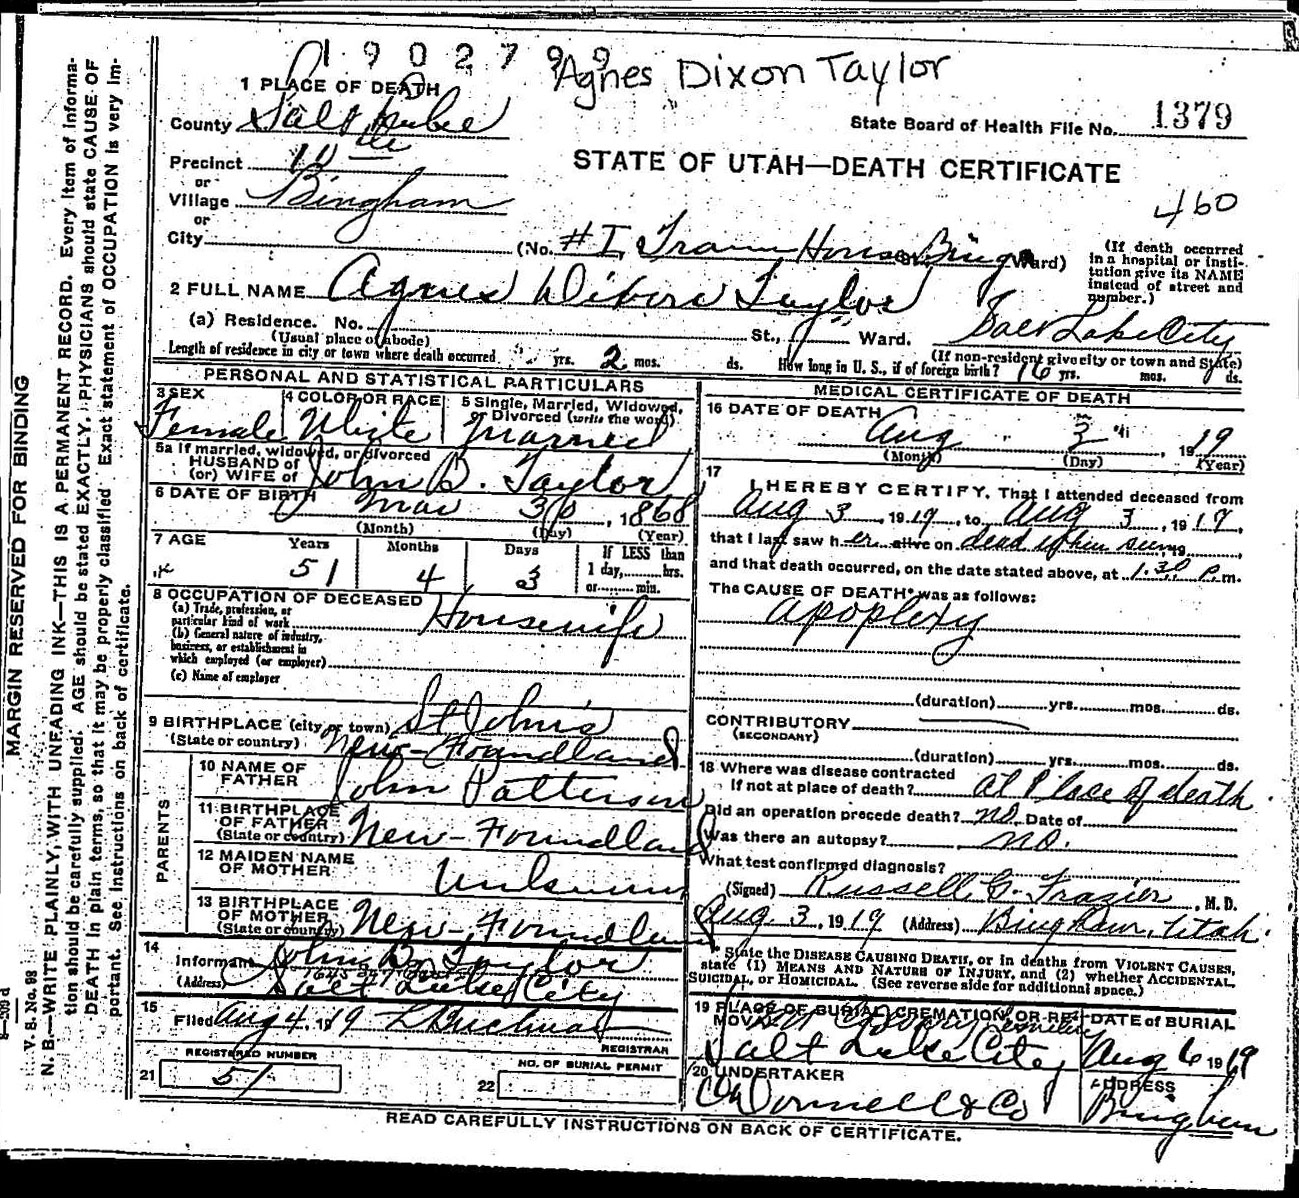 1902799
Agnes Dixon Taylor
1 PLACE OF DEATH
County Salt Lake
State Board of Health File No. 1379
Precinct 10
or
Village Bingham
STATE OF UTAH—DEATH CERTIFICATE
460
or
City (No. #1, House Bing St., Ward)
(If death occurred in a hospital or institution give its NAME instead of street and number.)
2 FULL NAME Agnes Taylor
(a) Residence. No. St., Ward. Salt Lake City
(Usual place of abode) (If non-resident give city or town and State)
Length of residence in city or town where death occurred yrs. 2 mos. ds. How long in U. S., if of foreign birth? 16 yrs. mos. ds.
PERSONAL AND STATISTICAL PARTICULARS
3 SEX Female
4 COLOR OR RACE White
5 Single, Married, Widowed, or Divorced (write the word) Married
5a If married, widowed, or divorced
HUSBAND of
(or) WIFE of John B. Taylor
6 DATE OF BIRTH Mar 30, 1868
(Month) (Day) (Year)
7 AGE Years 51 Months 4 Days 3
If LESS than 1 day, hrs. or min.
8 OCCUPATION OF DECEASED
(a) Trade, profession, or particular kind of work Housewife
(b) General nature of industry, business, or establishment in which employed (or employer)
(c) Name of employer
9 BIRTHPLACE (city or town) St Johns
(State or country) New-Foundland
PARENTS
10 NAME OF FATHER John Patterson
11 BIRTHPLACE OF FATHER (State or country) New-Foundland
12 MAIDEN NAME OF MOTHER Unknown
13 BIRTHPLACE OF MOTHER (State or country) New-Foundland
14
Informant John B. Taylor
(Address) Salt Lake City
15
Filed Aug 4, 1919
REGISTRAR
REGISTERED NUMBER
21 51
NO. OF BURIAL PERMIT
22
MEDICAL CERTIFICATE OF DEATH
16 DATE OF DEATH Aug 3, 1919
(Month) (Day) (Year)
17
I HEREBY CERTIFY, That I attended deceased from
Aug 3, 1919, to Aug 3, 1919,
that I last saw her alive on dead when seen,
and that death occurred, on the date stated above, at 1.30 P.m.
The CAUSE OF DEATH* was as follows:
apoplexy
(duration) yrs. mos. ds.
CONTRIBUTORY
(SECONDARY)
(duration) yrs. mos. ds.
18 Where was disease contracted
If not at place of death? at Place of death
Did an operation precede death? no Date of
Was there an autopsy? no.
What test confirmed diagnosis?
(Signed) Russell G. Frazier, M. D.
Aug 3, 1919 (Address) Bingham, Utah.
*State the DISEASE CAUSING DEATH, or in deaths from VIOLENT CAUSES,
state (1) MEANS AND NATURE OF INJURY, and (2) whether ACCIDENTAL,
SUICIDAL, or HOMICIDAL. (See reverse side for additional space.)
19 PLACE OF BURIAL, CREMATION, OR REMOVAL
Salt Lake City
DATE of BURIAL
Aug 6 1919
20 UNDERTAKER
O'Donnell & Co
ADDRESS
Bingham
READ CAREFULLY INSTRUCTIONS ON BACK OF CERTIFICATE.
MARGIN RESERVED FOR BINDING
V. S. No. 98
N. B.—WRITE PLAINLY, WITH UNFADING INK—THIS IS A PERMANENT RECORD. Every item of information should be carefully supplied. AGE should be stated EXACTLY. PHYSICIANS should state CAUSE OF DEATH in plain terms, so that it may be properly classified. Exact statement of OCCUPATION is very important. See instructions on back of certificate.